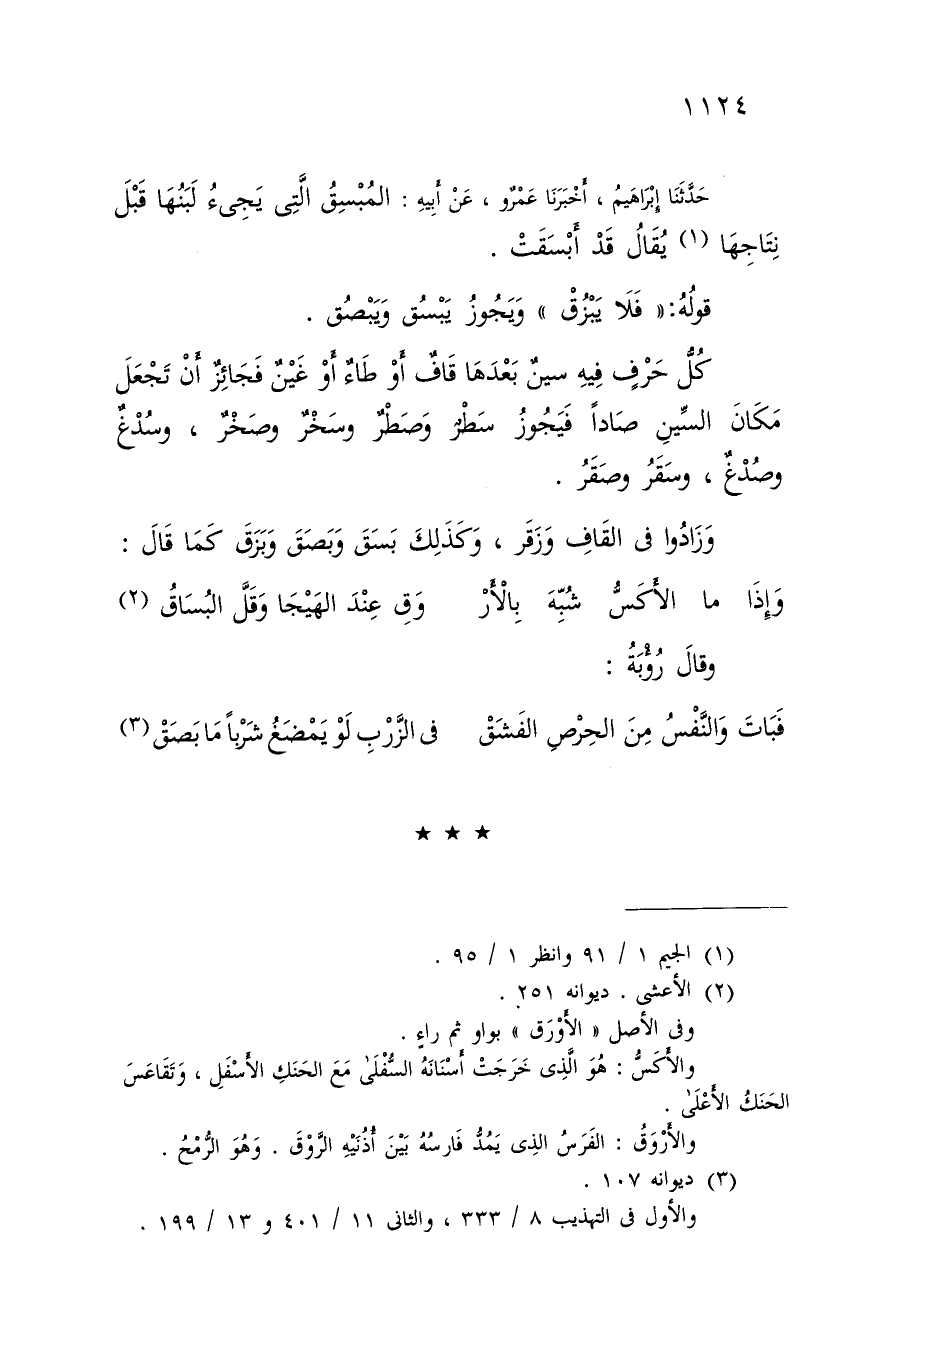 ١١٢٤
حَدَّثَنَا إِبْرَاهَيمُ ، أَخْبَرَنَا عَمْرٌو ، عَنْ أَبِيهِ : المُبْسِقُ الَّتِى يَجِىءُ لَبَنُهَا قَبْلَ
نِتَاجِهَا (١) يُقَالُ قَدْ أَبْسَقَتْ .
قولُهُ: « فَلَا يَبْزُقْ » وَيَجُوزُ يَبْسُق وَيَبْصُق .
كُلُّ حَرْفٍ فِيهِ سينٌ بَعْدَهَا قَافٌ أَوْ طَاءٌ أَوْ غَيْنٌ فَجَائِزٌ أَنْ تَجْعَلَ
مَكَانَ السِّينِ صَاداً فَيَجُوزُ سَطْرٌ وَصَطْرٌ وسَخْرٌ وصَخْرٌ ، وسُدْغٌ
وصُدْغٌ ، وسَقَرُ وصَقَرُ .
وَزَادُوا فى القَافِ وَزَقَر ، وَكَذَلِكَ بَسَقَ وَبَصَقَ وَبَزَقَ كَمَا قَالَ :
وَإِذَا ما الأَكَسُّ شُبِّهَ بِالْأَرْ وَقِ عِنْدَ الهَيْجَا وَقَلَّ البُسَاقُ (٢)
وقالَ رُؤْبَةُ :
فَبَاتَ وَالنَّفْسُ مِنَ الحِرْصِ الفَشَقْ فى الزَّرْبِ لَوْ يَمْضَغُ شَرْباً مَا بَصَقْ (٣)
★ ★ ★
(١) الجيم ١ / ٩١ وانظر ١ / ٩٥ .
(٢) الأعشى . ديوانه ٢٥١ .
وفى الأصل « الأَوْرَق » بواو ثم راءٍ .
والأَكَسُّ : هُوَ الَّذِى خَرَجَتْ أَسْنَانَهُ السُّفْلَىٰ مَعَ الحَنَكِ الأَسْفَلِ ، وَتَقَاعَسَ
الحَنَكُ الأَعْلَىٰ .
والأَرْوَقُ : الفَرَسُ الذِى يَمُدُّ فَارِسُهُ بَيْنَ أُذُنَيْهِ الرَّوْقَ . وَهُوَ الرُّمْحُ .
(٣) ديوانه ١٠٧ .
والأول فى التهذيب ٨ / ٣٣٣ ، والثانى ١١ / ٤٠١ و ١٣ / ١٩٩ .